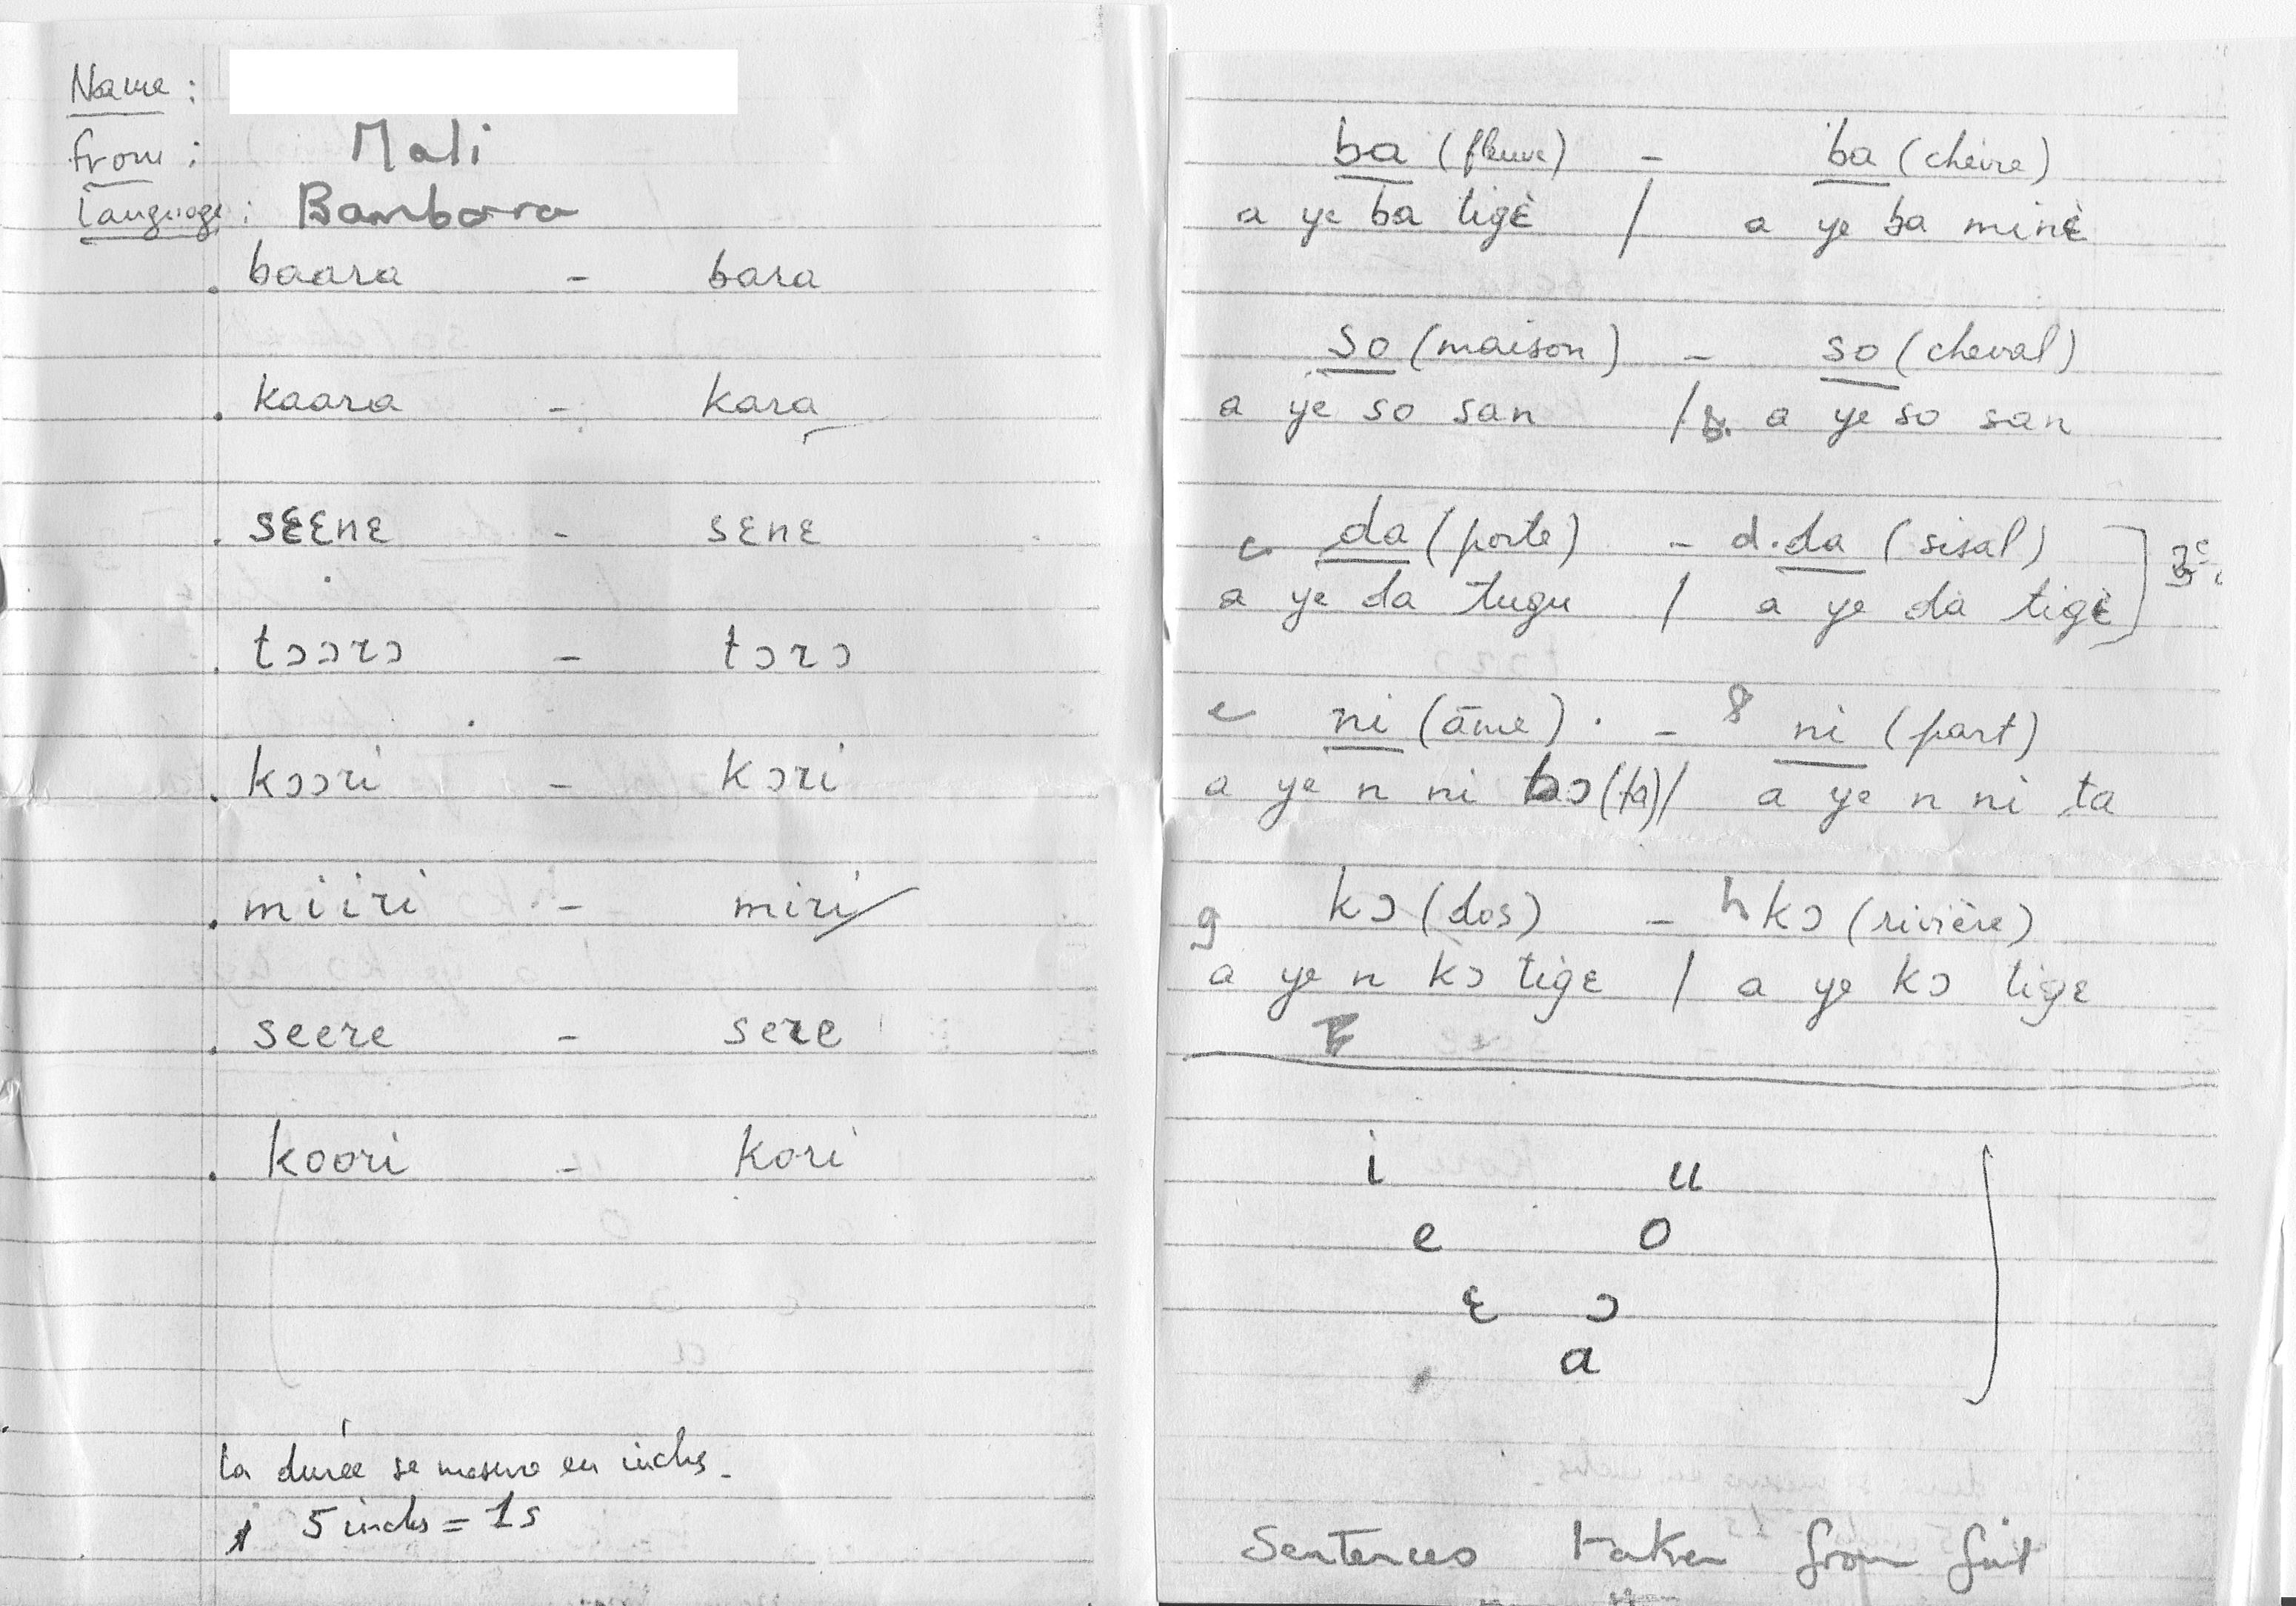 Name :
from : Mali
Language : Bambara
. baara - bara
. kaara - kara
. sɛɛnɛ - sɛnɛ
. tɔɔrɔ - tɔrɔ
. kɔɔri - kɔri
. miiri - miri
. seere - sere
. koori - kori
la durée se mesure en inchs.
5 inchs = 1s
ba (fleuve) - ba (chèvre)
a ye ba tigɛ / a ye ba minɛ
so (maison) - so (cheval)
a ye so san / a ye so san
c da (porte) - d. da (sisal)
a ye da tugu / a ye da tigɛ
e ni (âme) - 8 ni (part)
a ye n ni bɔ (ta) / a ye n ni ta
g kɔ (dos) - h kɔ (rivière)
a ye n kɔ tigɛ / a ye kɔ tigɛ
i u
e o
ɛ ɔ
a
Sentences taken from